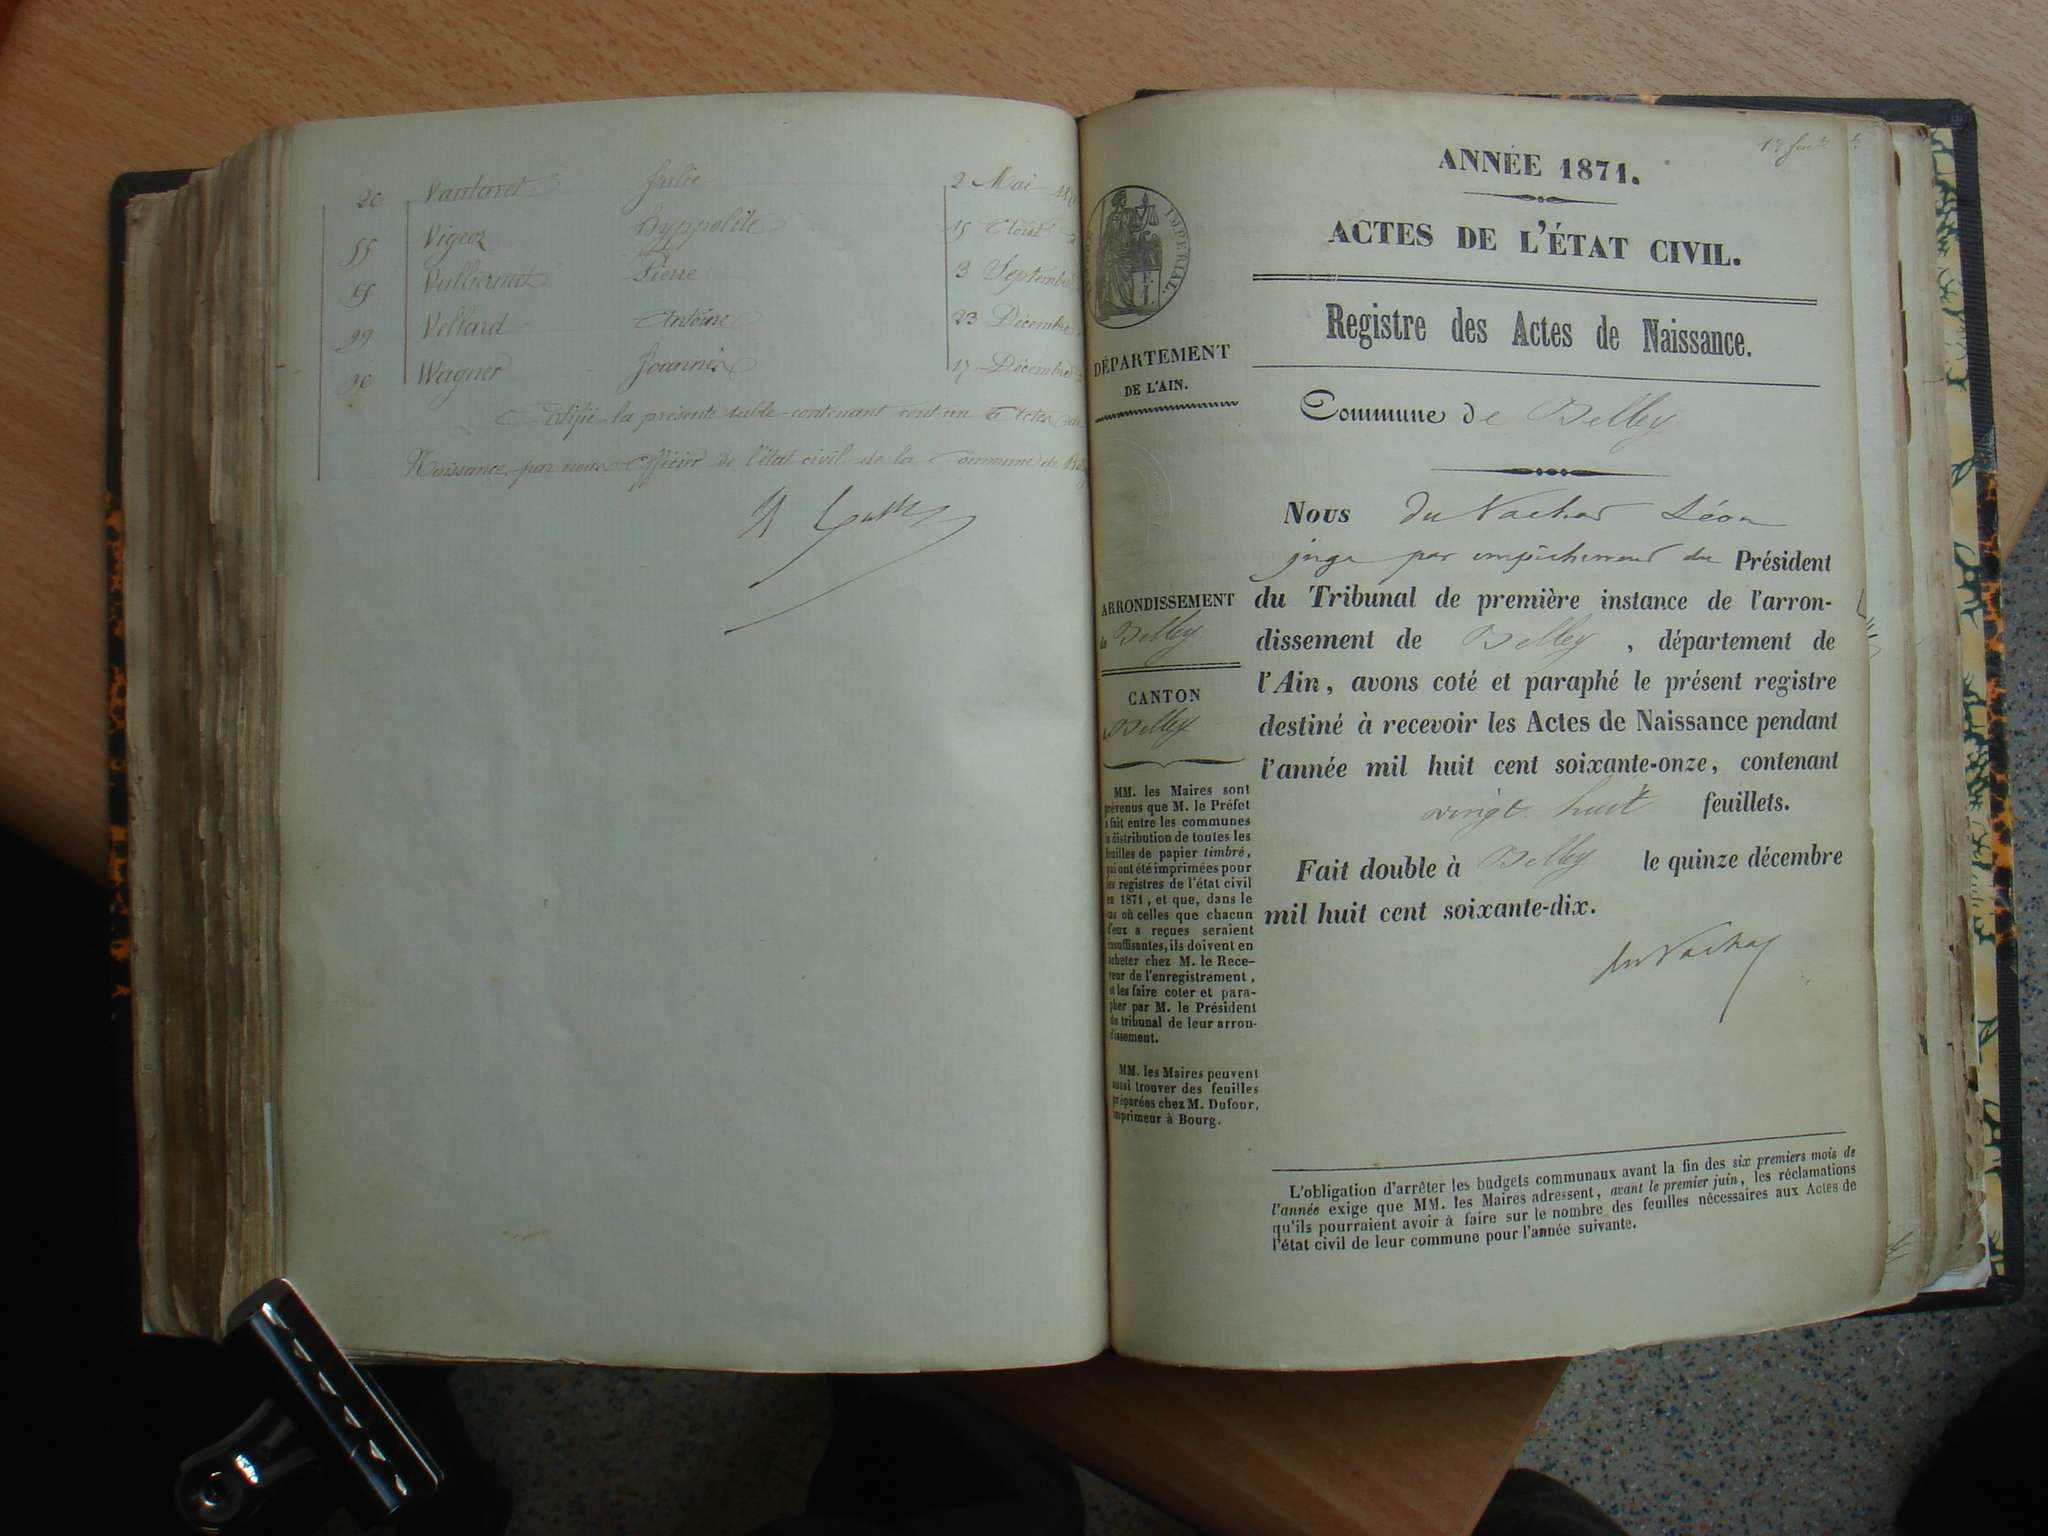 Julie 2 Mai
55 Hyppolite 15 Août
Pierre 3 Septembre
99 Velland Antoine 23 Décembre
96 Wagner Joannés 17 Décembre
Certifié la présente table contenant cent un Actes de
Naissance par nous Officier de l'état civil de la Commune de
ANNÉE 1871.
ACTES DE L'ÉTAT CIVIL.
Registre des Actes de Naissance.
Commune de Belley
IMPÉRIAL.
DÉPARTEMENT
DE L'AIN.
ARRONDISSEMENT
de Belley
CANTON
Belley
MM. les Maires sont
prévenus que M. le Préfet
a fait entre les communes
la distribution de toutes les
feuilles de papier timbré,
qui ont été imprimées pour
les registres de l'état civil
en 1871, et que, dans le
cas où celles que chacun
d'eux a reçues seraient
insuffisantes, ils doivent en
acheter chez M. le Rece-
veur de l'enregistrement,
et les faire coter et para-
pher par M. le Président
du tribunal de leur arron-
dissement.
MM. les Maires peuvent
aussi trouver des feuilles
préparées chez M. Dufour,
imprimeur à Bourg.
Nous du Vachat Léon
juge par empêchement du Président
du Tribunal de première instance de l'arron-
dissement de Belley, département de
l'Ain, avons coté et paraphé le présent registre
destiné à recevoir les Actes de Naissance pendant
l'année mil huit cent soixante-onze, contenant
vingt huit feuillets.
Fait double à Belley le quinze décembre
mil huit cent soixante-dix.
du Vachat
L'obligation d'arrêter les budgets communaux avant la fin des six premiers mois de
l'année exige que MM. les Maires adressent, avant le premier juin, les réclamations
qu'ils pourraient avoir à faire sur le nombre des feuilles nécessaires aux Actes de
l'état civil de leur commune pour l'année suivante.